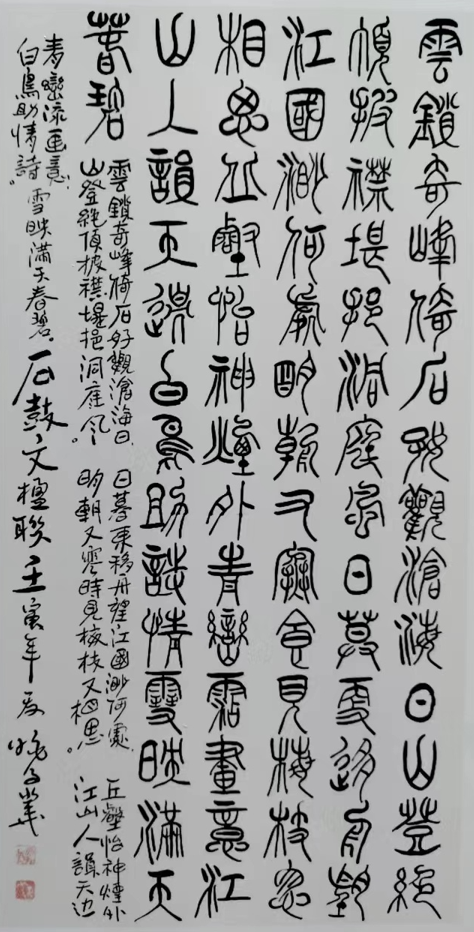 雲鎖奇峰倚石好觀滄海日山登絕
頂披襟堪挹洞庭風日暮更移舟望
江國渺何處明朝又寒食見梅枝忽
相思丘壑怡神煙外青巒添畫意江
山人韻天邊白鳥助詩情雪映滿天
春碧
雲鎖奇峰倚石好觀滄海日
山登絕頂披襟堪挹洞庭風。
日暮更移舟望江國渺何處
明朝又零時見梅枝又相思。
丘壑怡神煙外
江山人韻天边
青巒添画意
白鳥助情詩。雪映滿天春碧。
石鼓文楹联壬寅年夏